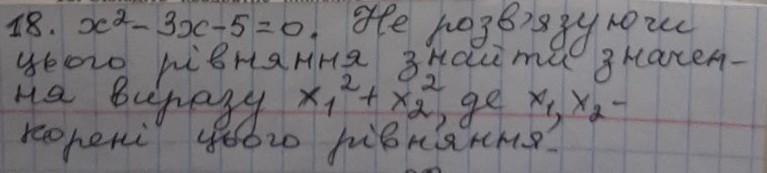 18. x² - 3x - 5 = 0. Не розв'язуючи
цього рівняння знайти значен-
ня виразу x₁² + x₂², де x₁, x₂ -
корені цього рівняння.